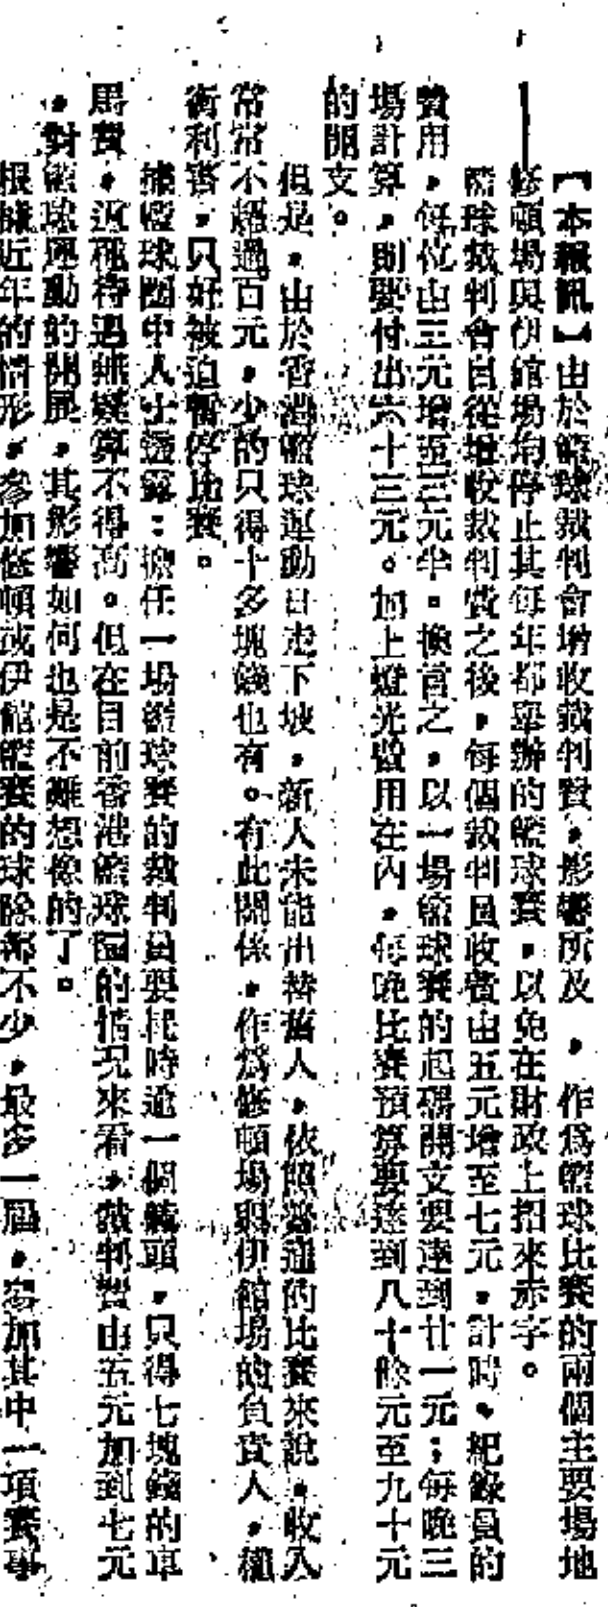 【本報訊】由於籃球裁判會增收裁判費，影響所及，作爲籃球比賽的兩個主要場地
修頓場與伊館場均停止其每年都舉辦的籃球賽，以免在財政上招來赤字。
籃球裁判會自從增收裁判費之後，每個裁判員收費由五元增至七元，計時，紀錄員的
費用，每位由三元增至三元半。換言之，以一場籃球賽的起碼開支要達到廿一元；每晚三
場計算，則要付出六十三元。加上燈光費用在內，每晚比賽預算要達到八十餘元至九十元
的開支。
但是，由於香港籃球運動日走下坡，新人未能出替舊人，依照普通的比賽來說，收入
常常不超過百元，少的只得十多塊錢也有。有此關係，作爲修頓場與伊館場的負責人，權
衡利害，只好被迫暫停比賽。
據籃球圈中人士透露：擔任一場籃球賽的裁判員要耗時逾一個鐘頭，只得七塊錢的車
馬費，這種待遇無疑算不得高。但在目前香港籃球圈的情況來看，裁判費由五元加到七元
，對籃球運動的開展，其影響如何也是不難想像的了。
根據近年的情形，參加修頓或伊館籃賽的球隊都不少，最多一屆，參加其中一項賽事